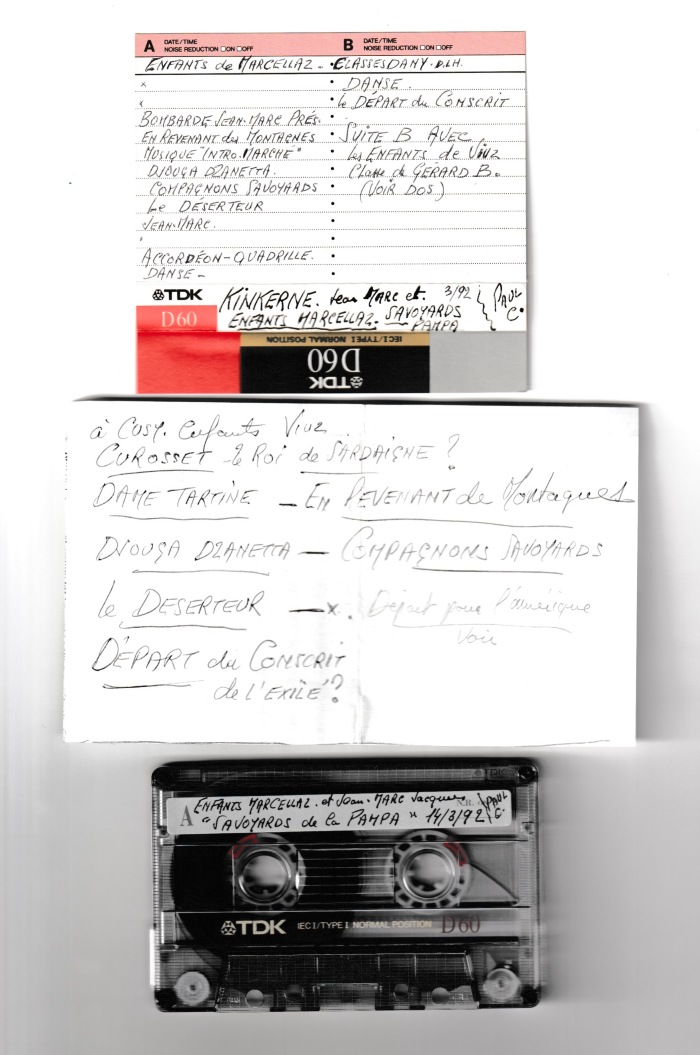 A DATE/TIME
NOISE REDUCTION □ON □OFF
B DATE/TIME
NOISE REDUCTION □ON □OFF
ENFANTS de MARCELLAZ -
x
x
BOMBARDE JEAN-MARC PRÉS.
EN REVENANT des MONTAGNES
MUSIQUE "INTRO. MARCHE"
DJOUGA DZANETTA.
COMPAGNONS SAVOYARDS
Le DÉSERTEUR
JEAN-MARC.
"
ACCORDÉON-QUADRILLE.
DANSE -
CLASSES DANY. D.LH.
DANSE.
le DÉPART du CONSCRIT
SUITE B AVEC
les ENFANTS de VIUZ
Classe de GERARD B.
(VOIR DOS)
TDK
D60
KINKERNE. Jean MARC et.
ENFANTS MARCELLAZ. SAVOYARDS
PAMPA
3/92
PAUL
C.
IEC I/TYPE I NORMAL POSITION
D60
TDK
à CUSY. Enfants VIUZ
CUROSSET - le Roi de SARDAIGNE ?
DAME TARTINE - EN REVENANT de Montagnes
DJOUGA DZANETTA - COMPAGNONS SAVOYARDS
le DESERTEUR - x. Départ pour l'amérique
Voir
DÉPART du CONSCRIT
de L'EXILÉ ?
TDK
A
ENFANTS MARCELLAZ. et Jean-MARC Jacquier
"SAVOYARDS de la PAMPA" 14/3/92
N.R.
PAUL
C.
TDK IEC I/TYPE I NORMAL POSITION D60